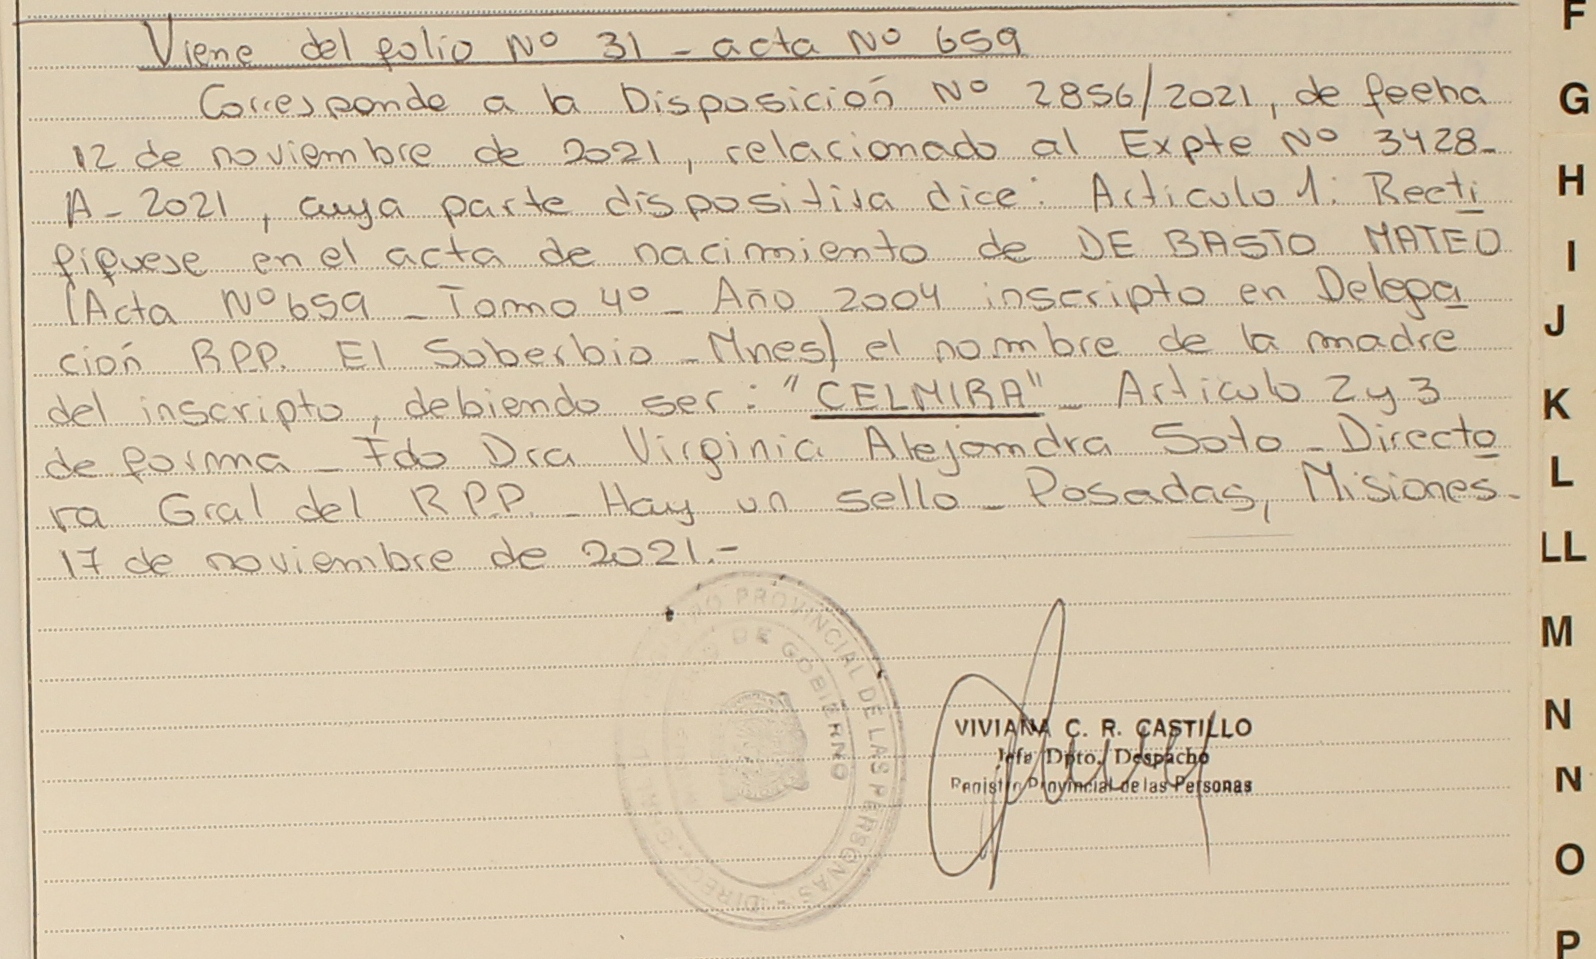 Viene del folio Nº 31 - acta Nº 659
Corresponde a la Disposición Nº 2856/2021, de fecha
12 de noviembre de 2021, relacionado al Expte Nº 3428-
A-2021, cuya parte dispositiva dice: Articulo 1: Recti
fíquese en el acta de nacimiento de DE BASTO MATEO
(Acta Nº 659 - Tomo 4º - Año 2004 inscripto en Delega
ción RPP. El Soberbio - Mnes) el nombre de la madre
del inscripto, debiendo ser: "CELMIRA" - Articulo 2 y 3
de forma - Fdo Dra Virginia Alejandra Soto - Directo
ra Gral del R.P.P. - Hay un sello - Posadas, Misiones -
17 de noviembre de 2021.-
PROVINCIAL DE LAS PERSONAS
DE GOBIERNO
VIVIANA C. R. CASTILLO
Jefe Dpto. Despacho
Registro Provincial de las Personas
F
G
H
I
J
K
L
LL
M
N
N
O
P